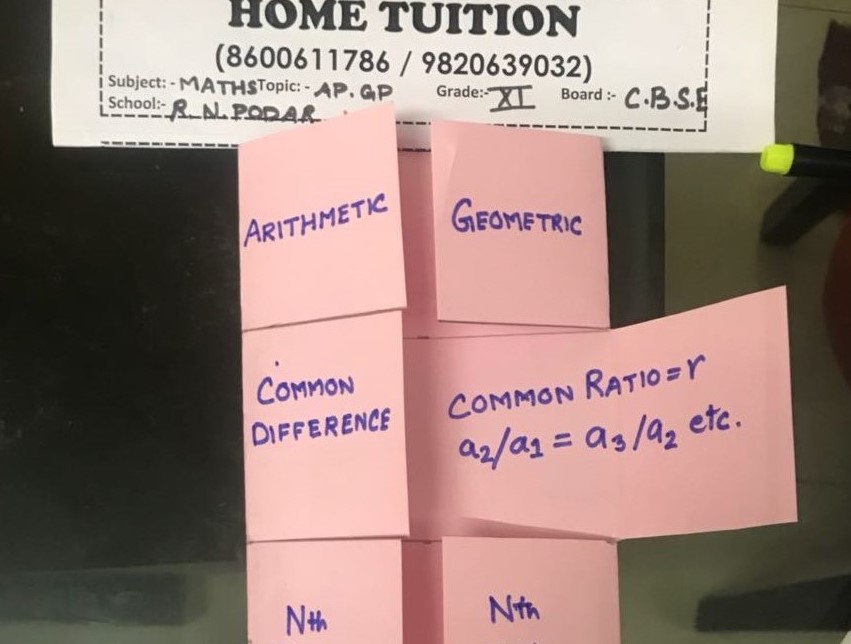 HOME TUITION
(8600611786 / 9820639032)
Subject: - MATHS Topic: - AP. GP Grade:- XI Board :- C.B.S.E
School:- R.N. PODAR
ARITHMETIC
GEOMETRIC
COMMON
DIFFERENCE
COMMON RATIO=r
a2/a1 = a3/a2 etc.
Nth
Nth